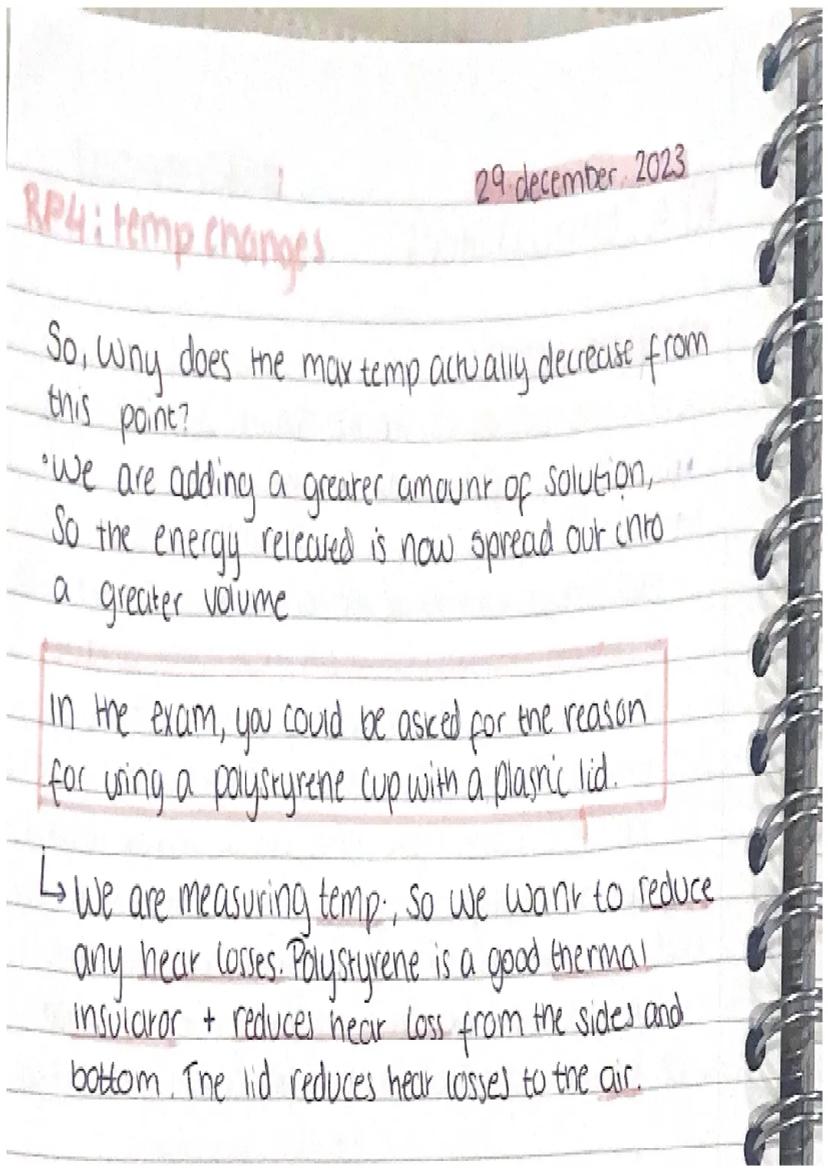 29 december 2023
RP4: temp changes
So, why does the max temp actually decrease from
this point?
•We are adding a greater amount of solution,
So the energy released is now spread out into
a greater volume
in the exam, you could be asked for the reason
for using a polystyrene cup with a plastic lid.
↳ We are measuring temp., so we want to reduce
any heat losses. Polystyrene is a good thermal
insulator + reduces heat loss from the sides and
bottom. The lid reduces heat losses to the air.